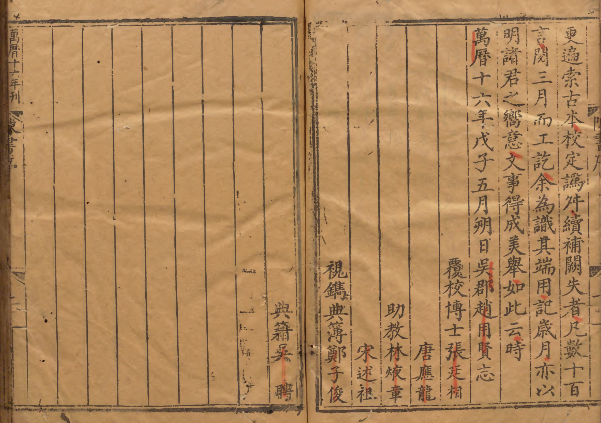 更遍索古本校定譌舛續補闕失者凡數十百
言閱三月而工訖余為識其端用記歲月亦以
明諸君之嚮意文事得成美舉如此云時
萬曆十六年戊子五月朔日吳郡趙用賢忘
覆校博士張廷相
唐應龍
助教林燫章
宋述祖
視鐫典簿鄭子俊
典籍吳 聘